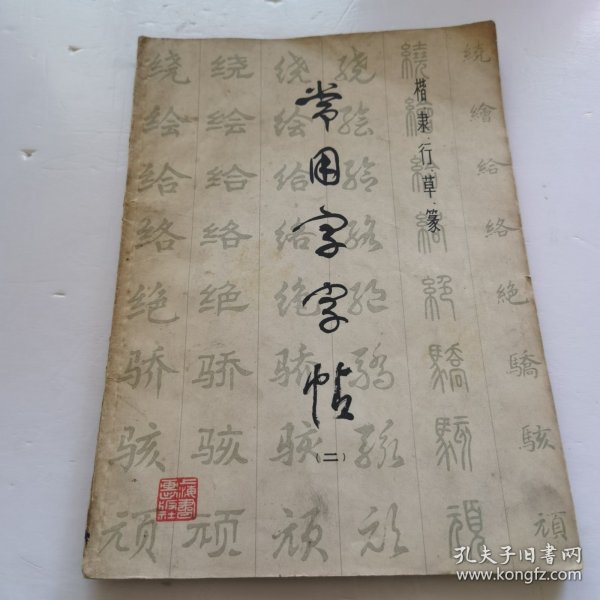 常用字字帖
(二)
楷·隶·行·草·篆
上海书画出版社
绕 绕 绕 绕 繞 繞
绘 绘 绘 绘 繪 繪
给 给 给 给 給 給
络 络 络 络 絡 絡
绝 绝 绝 绝 絕 絕
骄 骄 骄 驕 驕 驕
骇 骇 骇 骇 駭 駭
顽 顽 顽 顽 頑 頑
孔夫子旧书网
www.kongfz.com